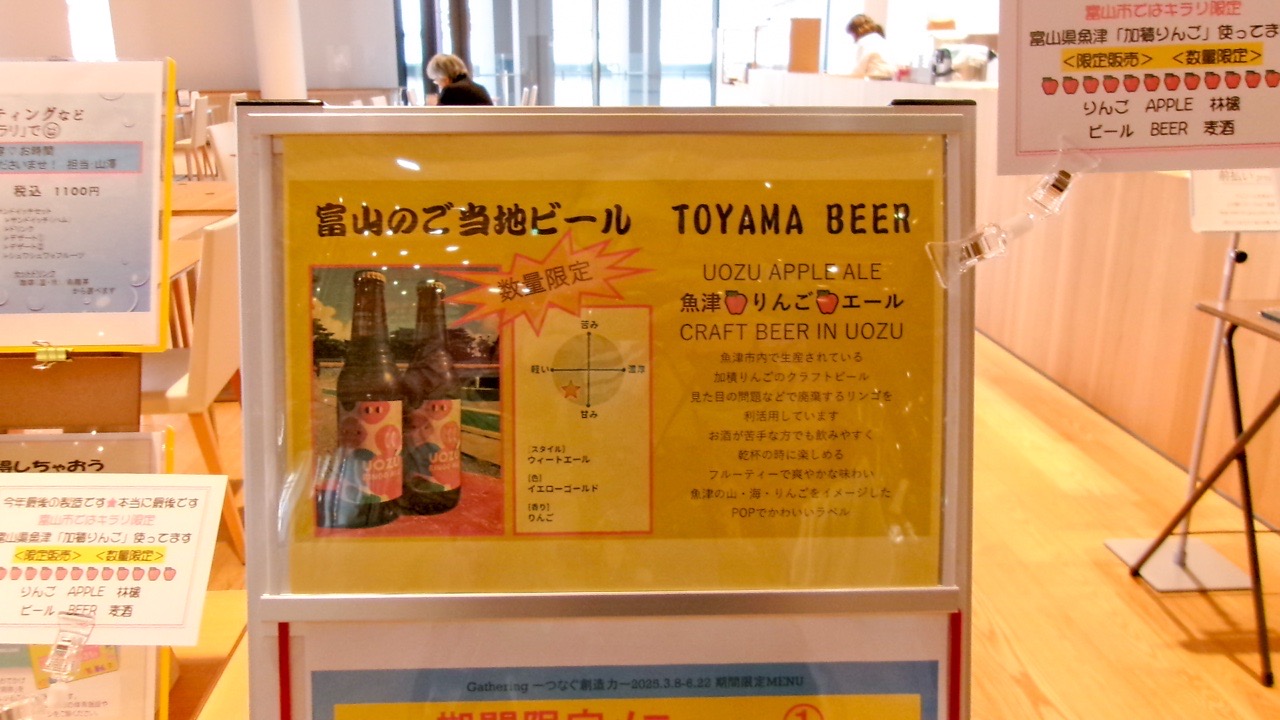 富山のご当地ビール TOYAMA BEER
数量限定
UOZU
UOZU
苦み
軽い
濃厚
甘み
[スタイル]
ウィートエール
[色]
イエローゴールド
[香り]
りんご
UOZU APPLE ALE
魚津🍎りんご🍎エール
CRAFT BEER IN UOZU
魚津市内で生産されている
加積りんごのクラフトビール
見た目の問題などで廃棄するリンゴを
利活用しています
お酒が苦手な方でも飲みやすく
乾杯の時に楽しめる
フルーティーで爽やかな味わい
魚津の山・海・りんごをイメージした
POPでかわいいラベル
Gathering ーつなぐ創造力ー2025.3.8-6.22 期間限定MENU
富山市ではキラリ限定
富山県魚津「加積りんご」使ってま
＜限定販売＞ ＜数量限定＞
りんご APPLE 林檎
ビール BEER 麦酒
ティングなど
ラリ」で
お時間
ださいませ！ 担当 山澤
税込 1100円
セットドリンク
から選べます
湯しちゃおう
今年最後の製造です★本当に最後です
富山市ではキラリ限定
富山県魚津「加積りんご」使ってます
＜限定販売＞ ＜数量限定＞
りんご APPLE 林檎
ビール BEER 麦酒